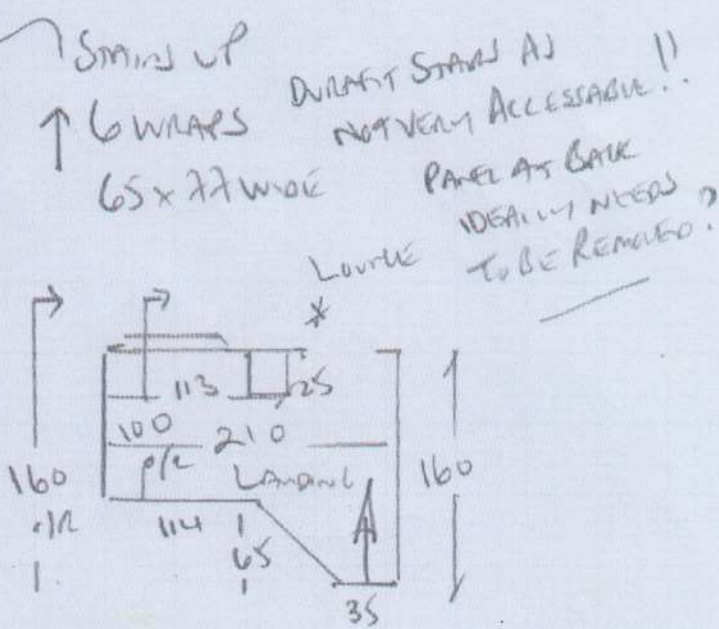 STAIRS UP
6 WRAPS
65 x 77 WIDE
STAIRS AS
NOT VERY ACCESSABLE!!
PANEL AT BACK
IDEALLY NEEDS
TO BE REMOVED?
LOUNGE
*
113
25
100
210
160
LANDING
160
114
65
35